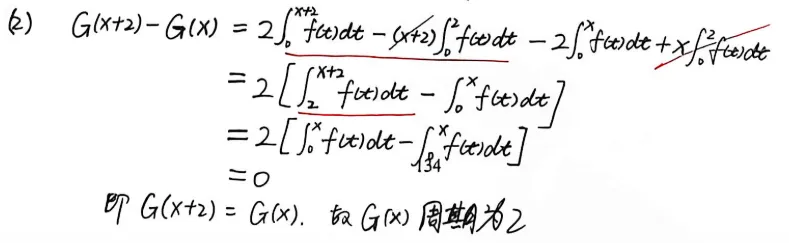 (2) G(x+2)-G(x) = 2∫₀ˣ⁺² f(t)dt - (x+2)∫₀² f(t)dt - 2∫₀ˣ f(t)dt + x∫₀² f(t)dt
= 2[∫₂ˣ⁺² f(t)dt - ∫₀ˣ f(t)dt]
= 2[∫₀ˣ f(t)dt - ∫₀ˣ f(t)dt]
134
= 0
即 G(x+2) = G(x). 故 G(x) 周期为2